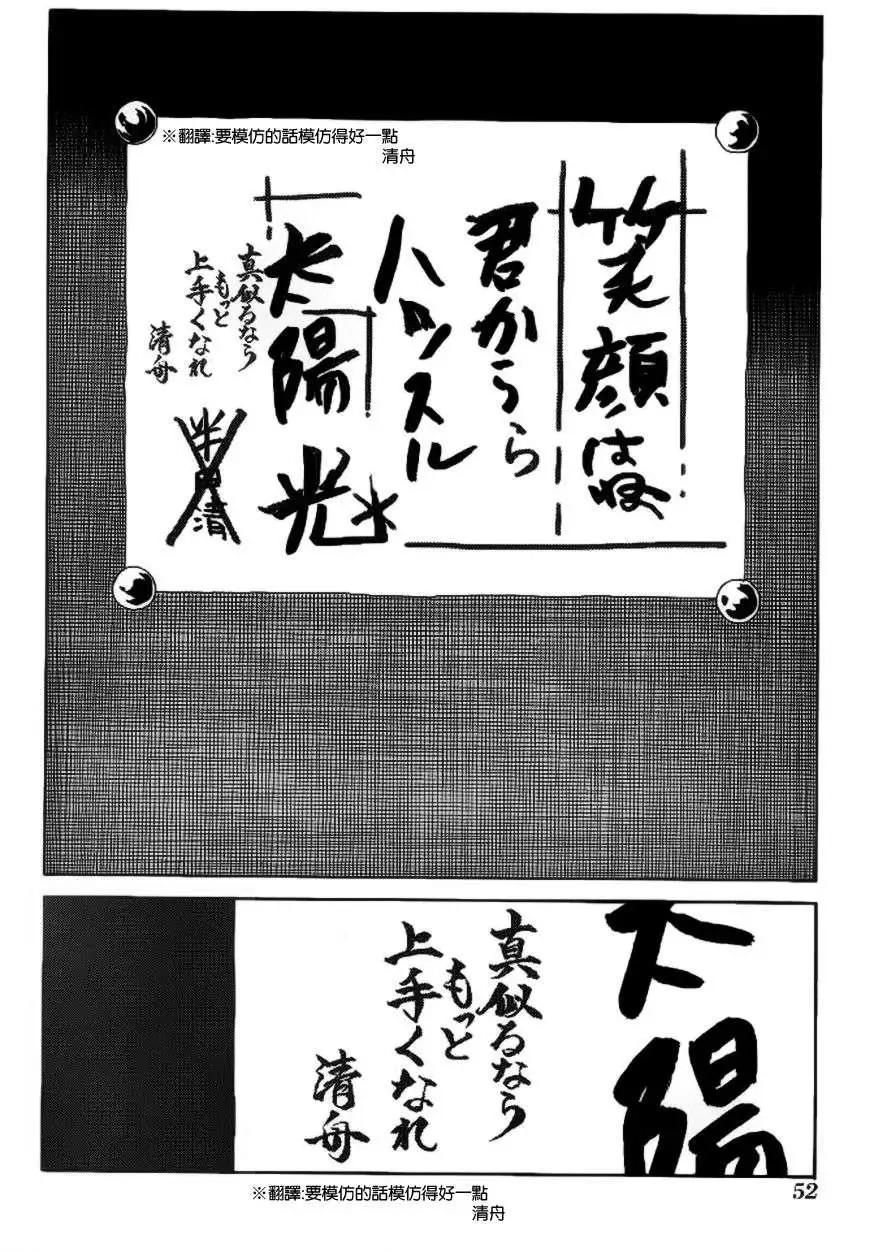 ※翻譯:要模仿的話模仿得好一點
清舟
笑顔はね
君からら
ハッスル
太陽光
真似るなら
もっと
上手くなれ
清舟
半田清
太陽
真似るなら
もっと
上手くなれ
清舟
※翻譯:要模仿的話模仿得好一點
清舟
52